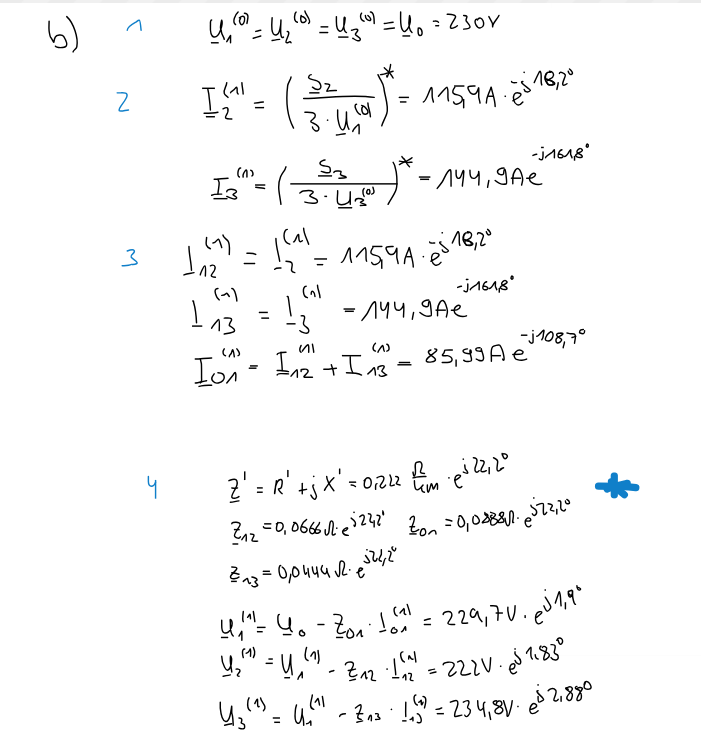 b) 1 U₁⁽⁰⁾ = U₂⁽⁰⁾ = U₃⁽⁰⁾ = U₀ = 230V
2 I₂⁽¹⁾ = (S₂ / 3·U₁⁽⁰⁾)* = 115,9A · e^-j18,2°
I₃⁽¹⁾ = (S₃ / 3·U₃⁽⁰⁾)* = 144,9A e^-j161,8°
3 I₁₂⁽¹⁾ = I₂⁽¹⁾ = 115,9A · e^-j18,2°
I₁₃⁽¹⁾ = I₃⁽¹⁾ = 144,9A e^-j161,8°
I₀₁⁽¹⁾ = I₁₂⁽¹⁾ + I₁₃⁽¹⁾ = 85,99A e^-j108,7°
4 Z' = R' + jX' = 0,222 Ω/km · e^j22,2°
Z₁₂ = 0,0666Ω · e^j22,2° Z₀₁ = 0,0888Ω · e^j22,2°
Z₁₃ = 0,0444Ω · e^j22,2°
U₁⁽¹⁾ = U₀ - Z₀₁ · I₀₁⁽¹⁾ = 229,7V · e^j1,9°
U₂⁽¹⁾ = U₁⁽¹⁾ - Z₁₂ · I₁₂⁽¹⁾ = 222V · e^j1,83°
U₃⁽¹⁾ = U₁⁽¹⁾ - Z₁₃ · I₁₃⁽¹⁾ = 234,8V · e^j2,88°